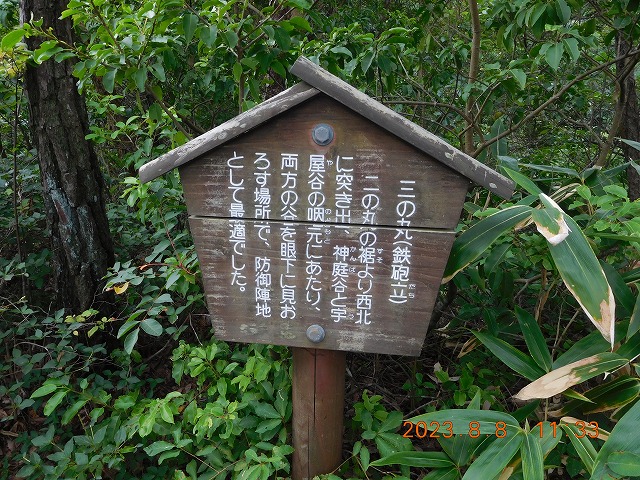 三の丸(鉄砲立)
だち
二の丸の裾より西北
すそ
に突き出、神庭谷と宇
かんば
屋谷の咽元にあたり、
や のどもと
両方の谷を眼下に見お
ろす場所で、防御陣地
として最適でした。
2023 8 8 11:33